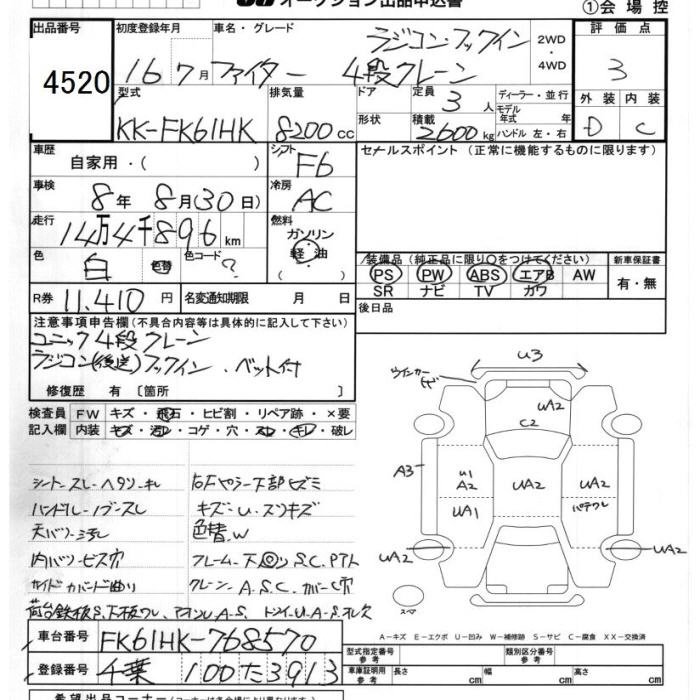 オークション出品申込書
①会場控
出品番号 初度登録年月 車名・グレード ラジコン・フックイン 2WD・4WD 評価点
4520 16 7月 ファイター 4段クレーン 3
型式 排気量 ドア 定員 3人 ディーラー・並行 外装 内装
KK-FK61HK 8200cc 形状 積載 2600kg モデル年式 年 ハンドル 左・右 D C
車歴 自家用・( ) シフト F6 セールスポイント (正常に機能するものに限ります)
車検 8年 8月(30日) 冷房 AC
走行 14万4千896km 燃料 ガソリン・軽油・( )
色 白 色替 色コード ?
装備品 (純正品に限り○をつけてください) 新車保証書
PS PW ABS エアB AW 有・無
SR ナビ TV カワ
R券 11,410円 名変通知期限 月 日 後日品
注意事項申告欄(不具合内容等は具体的に記入して下さい)
ユニック4段クレーン
ラジコン(後送)フックイン、ベット付
修復歴 有〔箇所 〕
検査員 FW キズ・飛石・ヒビ割・リペア跡・×要
記入欄 内装 キズ・汚レ・コゲ・穴・スレ・キレ・破レ
シートスレ・ヘタリ・キレ
ハンドルノブスレ
天バリ汚レ
内バリビス穴
サイドガード曲り
キズ・U・スリキズ
色替、W
フレーム・下回リS.C.
クレーン A.S.C.
車台番号 FK61HK-768570
登録番号 千葉 100た3913
ウインカー
U3
UA2
C2
A3
U1
A2
UA2
UA2
UA1
UA2
UA2
スペア
A-キズ E-エクボ U-凹み W-補修跡 S-サビ C-腐食 XX-交換済
型式指定番号 参考 類別区分番号 参考
車庫証明用 参考 長さ cm 幅 cm 高さ cm
希望出品コーナー